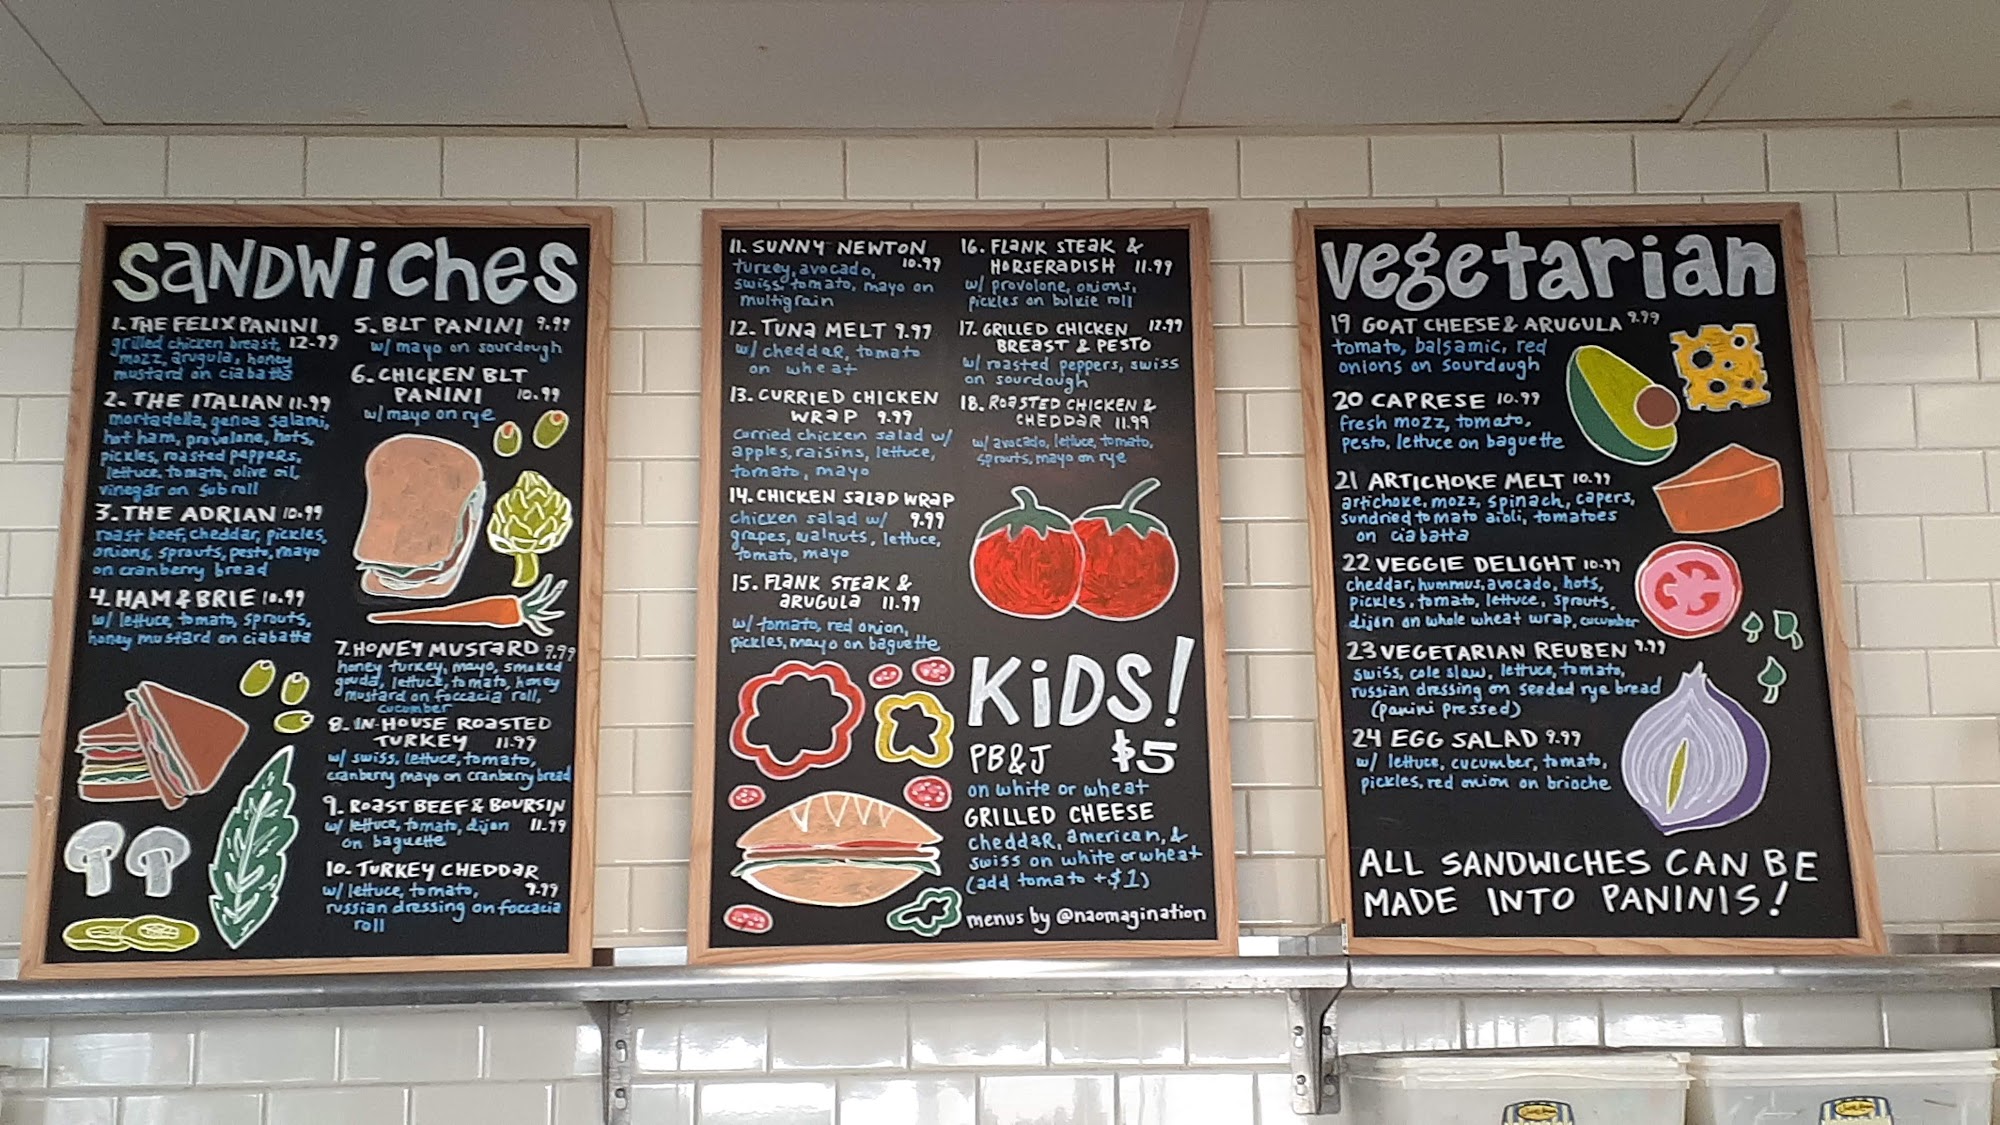 SANDWICHES
1. THE FELIX PANINI
grilled chicken breast, 12.99
mozz, arugula, honey
mustard on ciabatta
2. THE ITALIAN 11.99
mortadella, genoa salami,
hot ham, provolone, hots,
pickles, roasted peppers,
lettuce, tomato, olive oil,
vinegar on sub roll
3. THE ADRIAN 10.99
roast beef, cheddar, pickles,
onions, sprouts, pesto, mayo
on cranberry bread
4. HAM & BRIE 10.99
w/ lettuce, tomato, sprouts,
honey mustard on ciabatta
5. BLT PANINI 9.99
w/ mayo on sourdough
6. CHICKEN BLT
PANINI 10.99
w/ mayo on rye
7. HONEY MUSTARD 9.99
honey turkey, mayo, smoked
gouda, lettuce, tomato, honey
mustard on foccacia roll,
cucumber
8. IN-HOUSE ROASTED
TURKEY 11.99
w/ swiss, lettuce, tomato,
cranberry mayo on cranberry bread
9. ROAST BEEF & BOURSIN
w/ lettuce, tomato, dijon 11.99
on baguette
10. TURKEY CHEDDAR
w/ lettuce, tomato, 9.99
russian dressing on foccacia
roll
11. SUNNY NEWTON
turkey, avocado, 10.99
swiss, tomato, mayo on
multigrain
12. TUNA MELT 9.99
w/ cheddar, tomato
on wheat
13. CURRIED CHICKEN
WRAP 9.99
curried chicken salad w/
apples, raisins, lettuce,
tomato, mayo
14. CHICKEN SALAD WRAP
chicken salad w/ 9.99
grapes, walnuts, lettuce,
tomato, mayo
15. FLANK STEAK &
ARUGULA 11.99
w/ tomato, red onion,
pickles, mayo on baguette
16. FLANK STEAK &
HORSERADISH 11.99
w/ provolone, onions,
pickles on bulkie roll
17. GRILLED CHICKEN 12.99
BREAST & PESTO
w/ roasted peppers, swiss
on sourdough
18. ROASTED CHICKEN &
CHEDDAR 11.99
w/ avocado, lettuce, tomato,
sprouts, mayo on rye
KIDS!
PB&J $5
on white or wheat
GRILLED CHEESE
cheddar, american, &
swiss on white or wheat
(add tomato +$1)
menus by @naomagination
Vegetarian
19 GOAT CHEESE & ARUGULA 9.99
tomato, balsamic, red
onions on sourdough
20 CAPRESE 10.99
fresh mozz, tomato,
pesto, lettuce on baguette
21 ARTICHOKE MELT 10.99
artichoke, mozz, spinach, capers,
sundried tomato aioli, tomatoes
on ciabatta
22 VEGGIE DELIGHT 10.99
cheddar, hummus, avocado, hots,
pickles, tomato, lettuce, sprouts,
dijon on whole wheat wrap, cucumber
23 VEGETARIAN REUBEN 9.99
swiss, cole slaw, lettuce, tomato,
russian dressing on seeded rye bread
(panini pressed)
24 EGG SALAD 9.99
w/ lettuce, cucumber, tomato,
pickles, red onion on brioche
ALL SANDWICHES CAN BE
MADE INTO PANINIS!